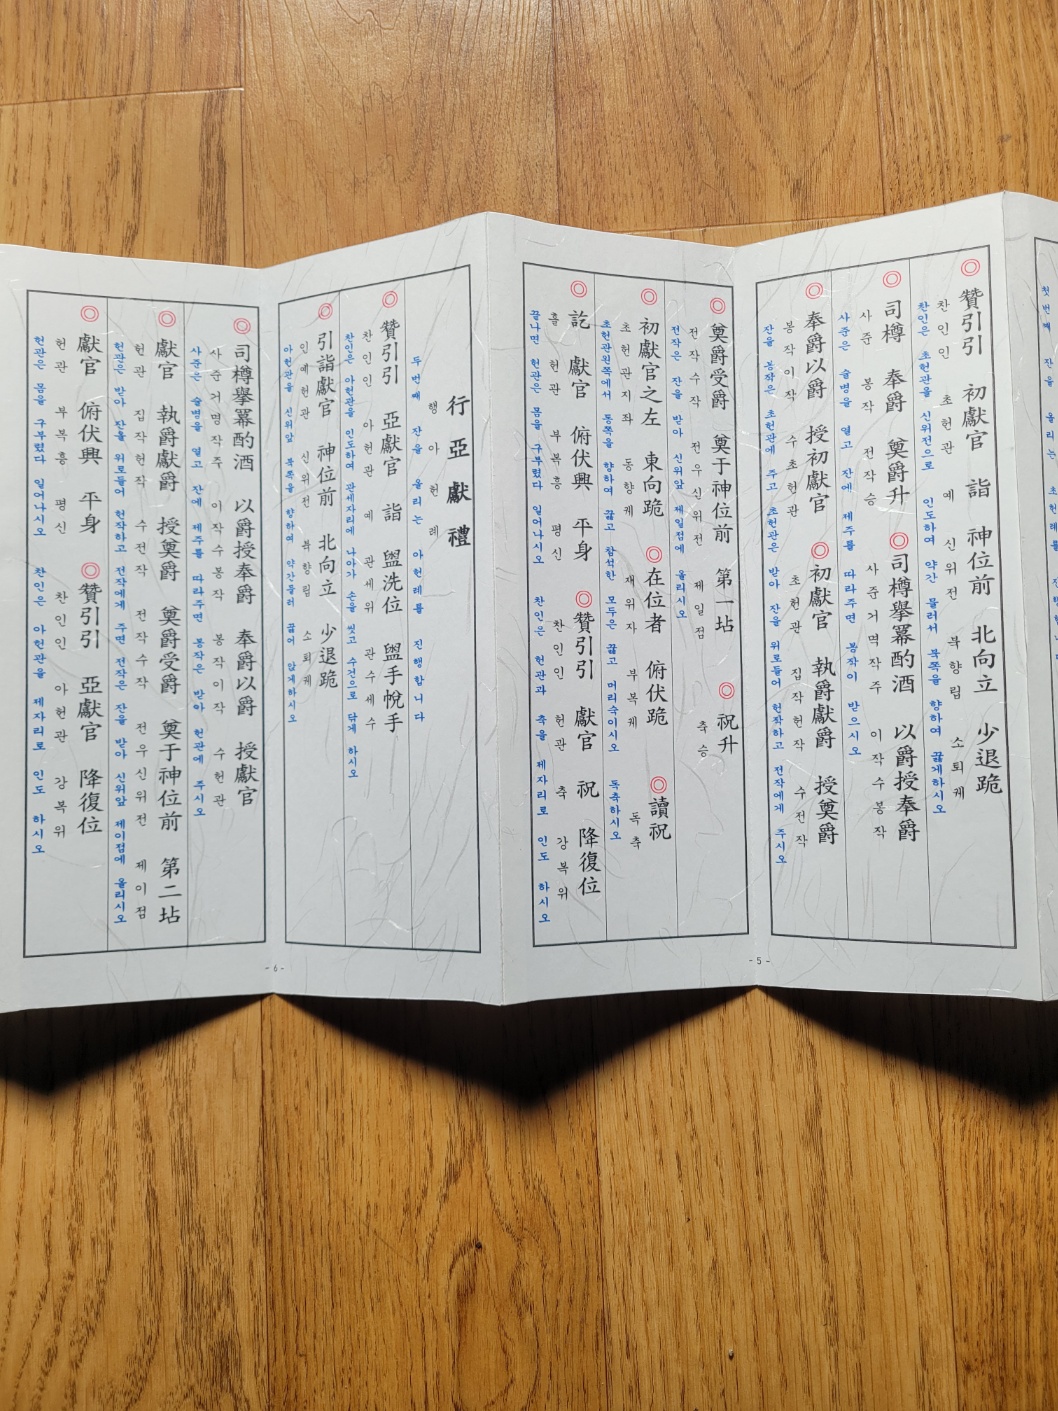 첫번째 잔을 올리는 초헌례를
◎贊引引 初獻官 詣 神位前 北向立 少退跪
찬인인 초헌관 예 신위전 북향립 소퇴궤
찬인은 초헌관을 신위전으로 인도하여 약간 물러서 북쪽을 향하여 꿇게하시오
◎司樽 奉爵 奠爵升 ◎司樽擧冪酌酒 以爵授奉爵
사준 봉작 전작승 사준거멱작주 이작수봉작
사준은 술병을 열고 잔에 제주를 따라주면 봉작이 받으시오
◎奉爵以爵 授初獻官 ◎初獻官 執爵獻爵 授奠爵
봉작이작 수초헌관 초헌관 집작헌작 수전작
잔을 봉작은 초헌관에 주고 초헌관은 받아 잔을 위로들어 헌작하고 전작에게 주시오
- 5 -
◎奠爵受爵 奠于神位前 第一坫 ◎祝升
전작수작 전우신위전 제일점 축승
전작은 잔을 받아 신위앞 제일점에 올리시오
◎初獻官之左 東向跪 ◎在位者 俯伏跪 ◎讀祝
초헌관지좌 동향궤 재위자 부복궤 독축
초헌관왼쪽에서 동쪽을 향하여 꿇고 참석한 모두은 꿇고 머리숙이시오 독축하시오
◎訖 獻官 俯伏興 平身 ◎贊引引 獻官 祝 降復位
흘 헌관 부복흥 평신 찬인인 헌관 축 강복위
끝나면 헌관은 몸을 구부렸다 일어나시오 찬인은 헌관과 축을 제자리로 인도 하시오
行亞獻禮
행아헌례
두번째 잔을 올리는 아헌례를 진행합니다
◎贊引引 亞獻官 詣 盥洗位 盥手帨手
찬인인 아헌관 예 관세위 관수세수
찬인은 아헌관을 인도하여 관세자리에 나아가 손을 씻고 수건으로 닦게 하시오
◎引詣獻官 神位前 北向立 少退跪
인예헌관 신위전 북향립 소퇴궤
아헌관을 신위앞 북쪽을 향하여 약간물러 꿇어 앉게하시오
- 6 -
◎司樽擧冪酌酒 以爵授奉爵 奉爵以爵 授獻官
사준거멱작주 이작수봉작 봉작이작 수헌관
사준은 술병을 열고 잔에 제주를 따라주면 봉작은 받아 헌관에 주시오
◎獻官 執爵獻爵 授奠爵 奠爵受爵 奠于神位前 第二坫
헌관 집작헌작 수전작 전작수작 전우신위전 제이점
헌관은 받아 잔을 위로들어 헌작하고 전작에게 주면 전작은 잔을 받아 신위앞 제이점에 올리시오
◎獻官 俯伏興 平身 ◎贊引引 亞獻官 降復位
헌관 부복흥 평신 찬인인 아헌관 강복위
헌관은 몸을 구부렸다 일어나시오 찬인은 아헌관을 제자리로 인도 하시오